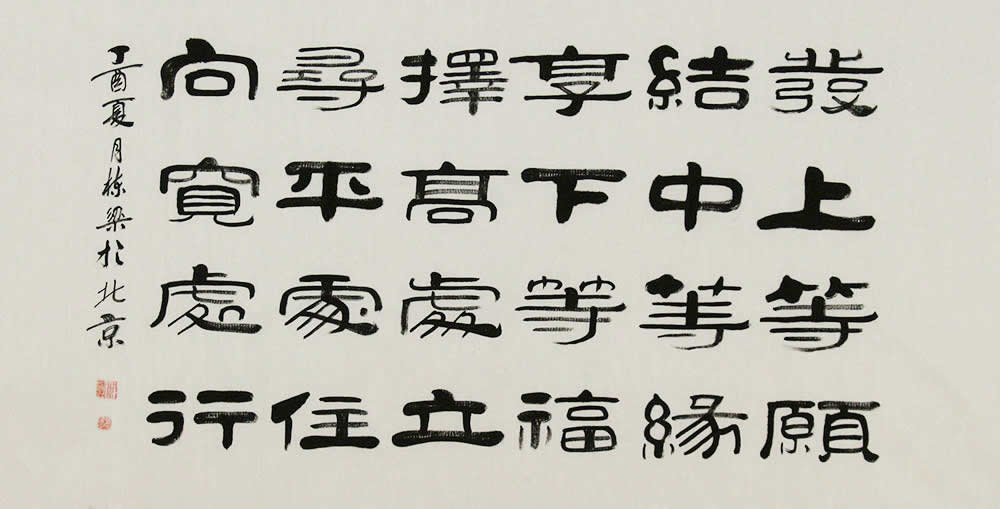 發上等願
結中等緣
享下等福
擇高處立
尋平處住
向寬處行
丁酉夏月棟梁於北京